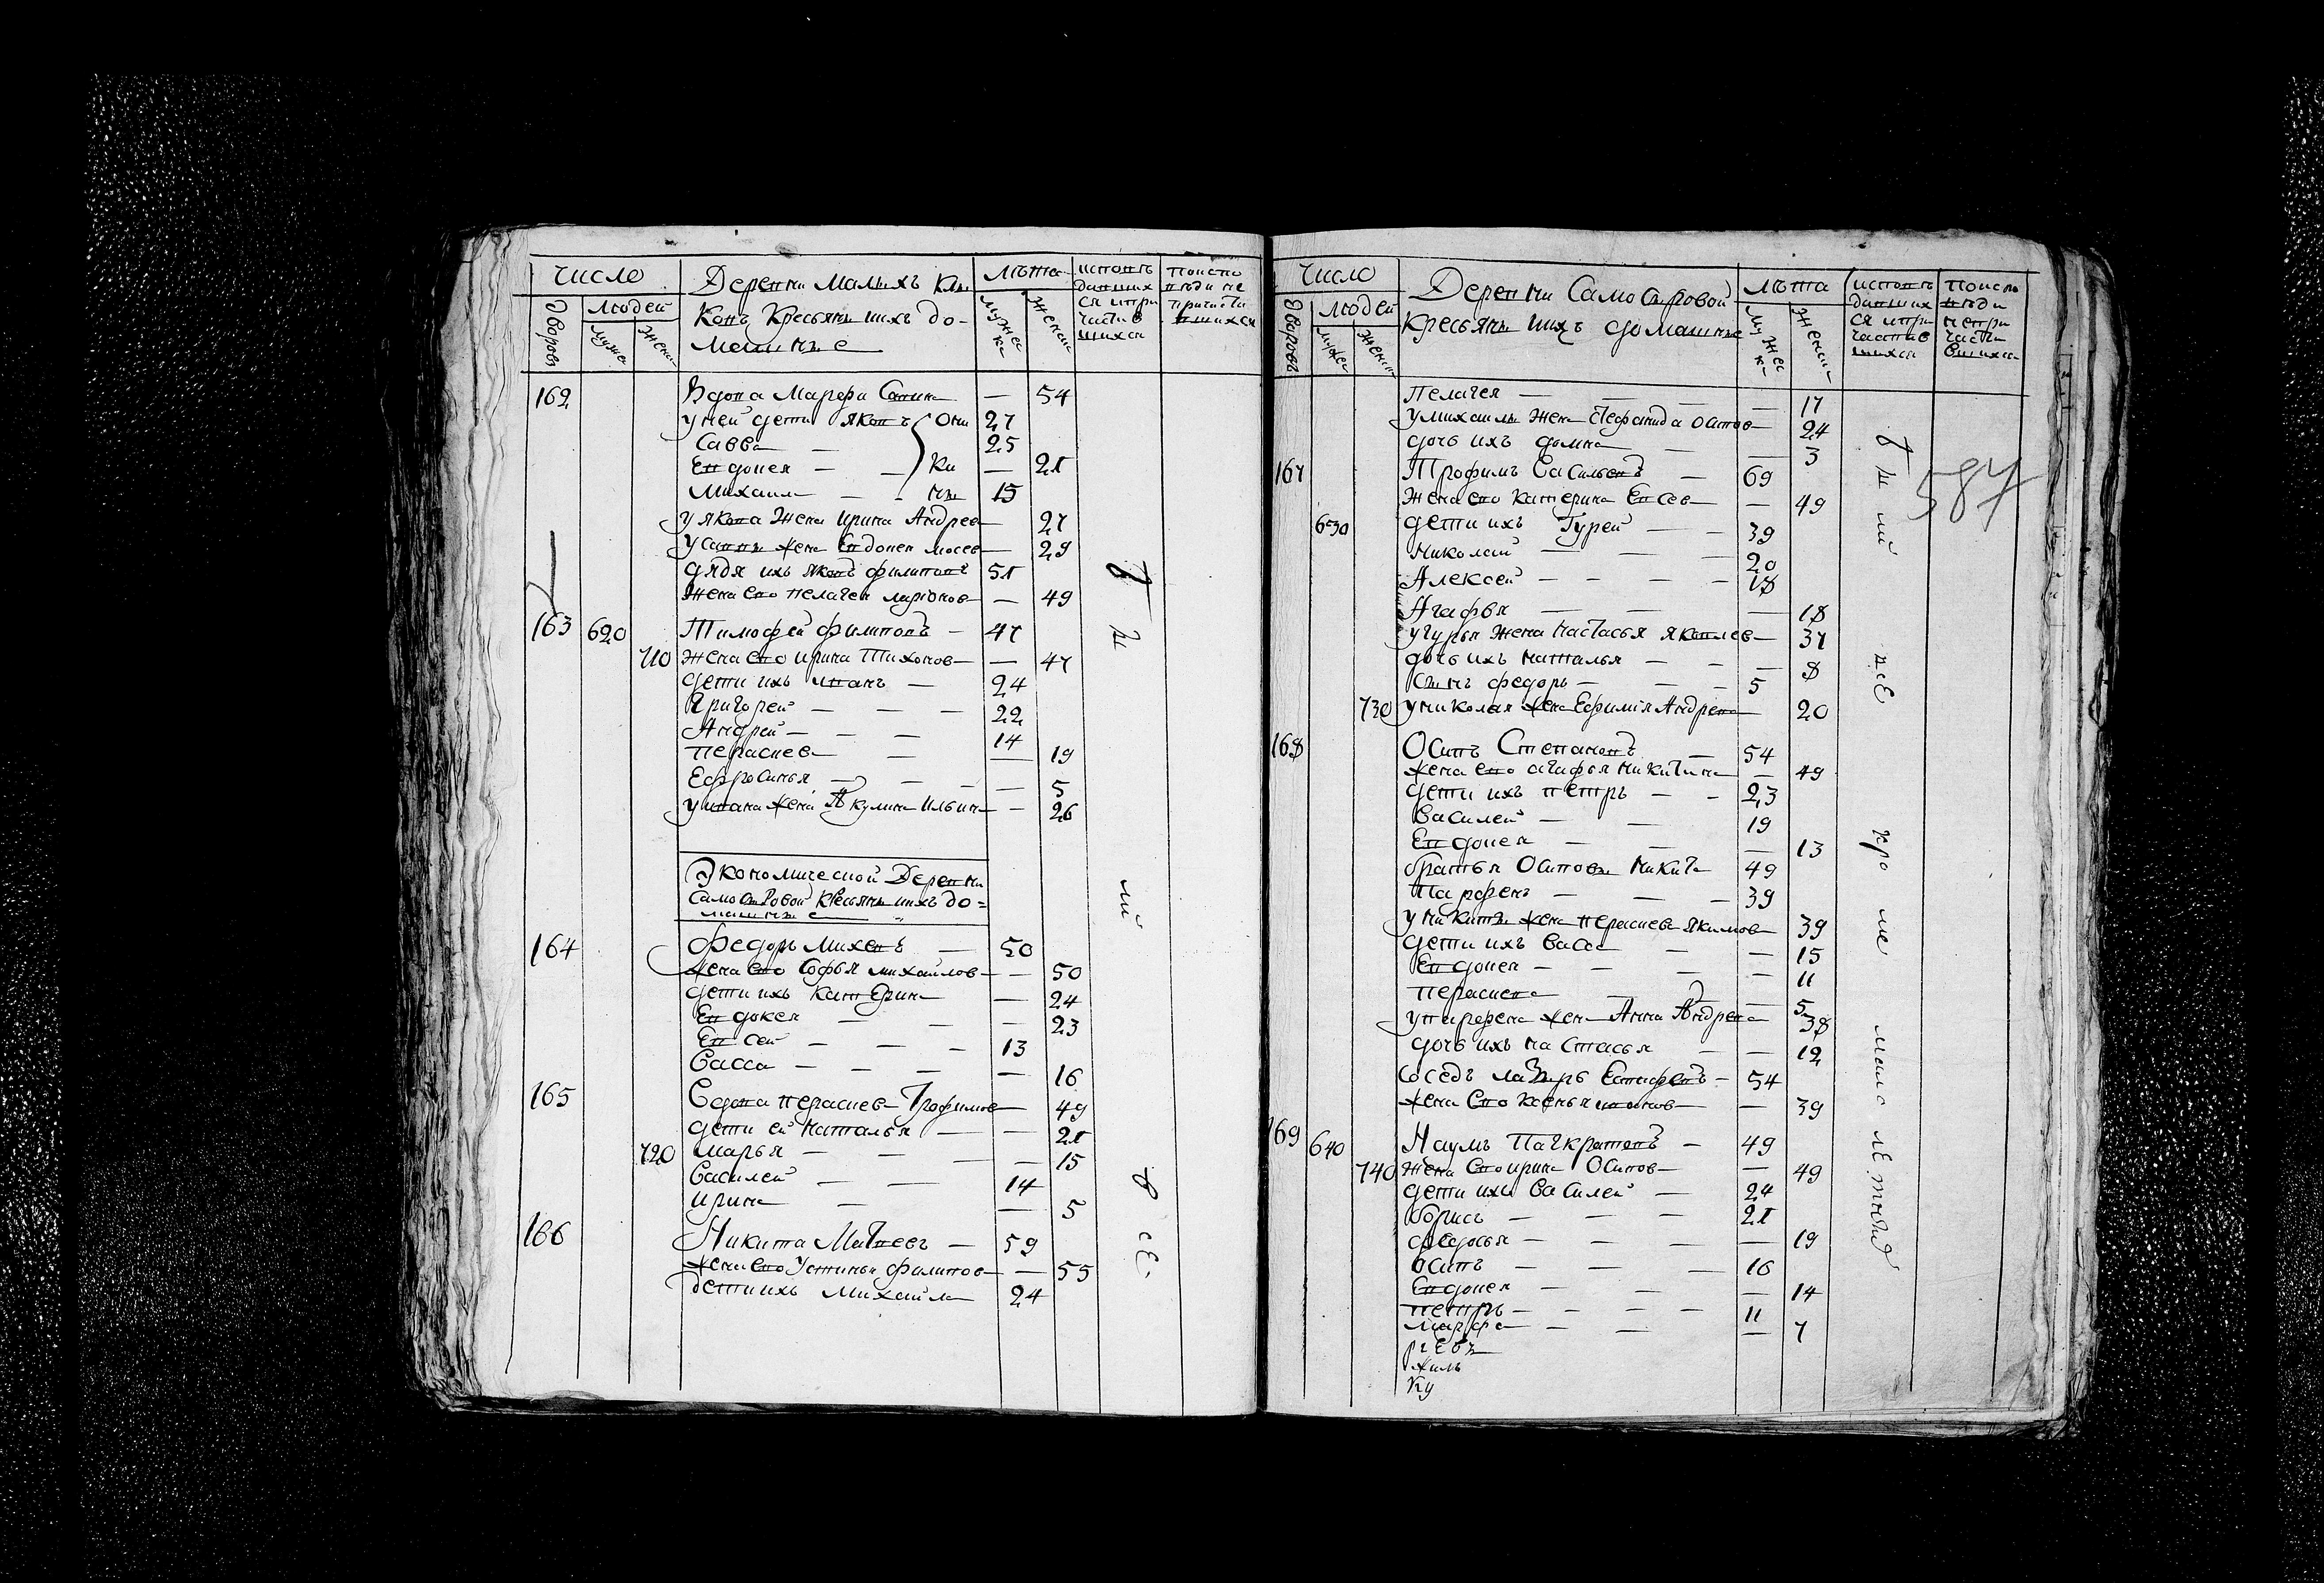 число
Деревни Малыхъ Клы
ковъ Кресьяне ихъ до-
машные
лѣта
исповѣ
давших
ся ипри
части в
шихся
поиспо
вѣди не
причасти
вшихся
дворовъ
людей
мужес
женс
мужес
ка
женска
162 Вдова Марфа Савина — 54
у ней дети яковъ они 27
Савва — 25
Евдокея — — ки — 21
Михаил — — 15
у якова жена ирина Андрев — 27
у Саввы жена Евдокея мосев — 29
дядя ихъ яковъ филиповъ 51
жена ево пелагея ларионов — 49
163 620 Тимофей филиповъ — 47
710 жена ево ирина Тихонов — 47
дети ихъ иванъ — 24
Григорей — — — 22
Андрей — — — 14
Парасиев — — 19
Ефросинья — — — 5
у ивана жена Акулина ильин — 26
Экономической Деревни
Самосѣровой Кресьяне ихъ до=
машные
164 федоръ михевъ — 50
жена ево Софья михайлов — 50
дети ихъ Катерина — 24
Евдокея — — — 23
Евсей — — — 13
Васса — — — 16
165 Вдова парасиев Трофимов — 49
дети ей наталья — — 21
720 марья — — — 15
Василей — — 14
ирина — — 5
166 Никита Матвевъ — 59
жена ево Устинья филипов — 55
дети ихъ михаила 24
б ы
ли
в сѣ
число
Деревни Самосѣровой
Кресьяне ихъ домашные
лѣта
исповѣ
давших
ся ипри
частив
шихся
поиспо
вѣди
непри
части
вшихся
дворовъ
людей
мужес
женск
мужес
ка
женск
587
Пелагея — — — 17
у михаилы жена Стефанида осипов — 24
дочь ихъ домна — — 3
167 Трофимъ Васильевъ — 69
жена ево катерина Евсев — 49
630 дети ихъ Гурей — — 39
николай — — — 20
Алексей — — — — 18
Агафья — — — 18
у гурья жена настасья яковлев — 37
дочь ихъ наталья — — — 8
сынъ федоръ — — — 5
730 у николая жена Ефимія Андрева — 20
168 Осипъ Степановъ — 54
жена ево агафья никитина — 49
дети ихъ петръ — — 23
Василей — — 19
Евдокея — — — 13
братья Осиповы никита 49
Парфенъ — — — 39
у никиты жена парасиев якимов — 39
дети ихъ Васса — — 15
Евдокея — — — — 11
парасиева — — — 5
у парфена жена Анна Андрева 38
дочь ихъ настасья — — 12
сосѣдъ лазарь Естифевъ — 54
жена ево ксенья иванов — 39
169 640 Наумъ Панкратовъ — 49
740 жена ево ирина Осипов — 49
дети ихъ Василей — 24
борисъ — — — 21
федосья — — — — 19
осипъ — — — 16
Евдокея — — — 14
петръ — — — — 11
марфа — — — 7
б ы ли
всѣ
кро ме
мало лѣтныхъ